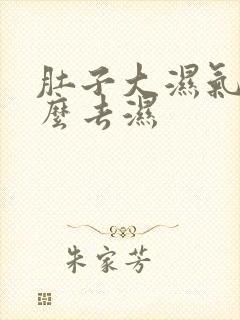 肚子大濕氣
麼去濕
朱家芳